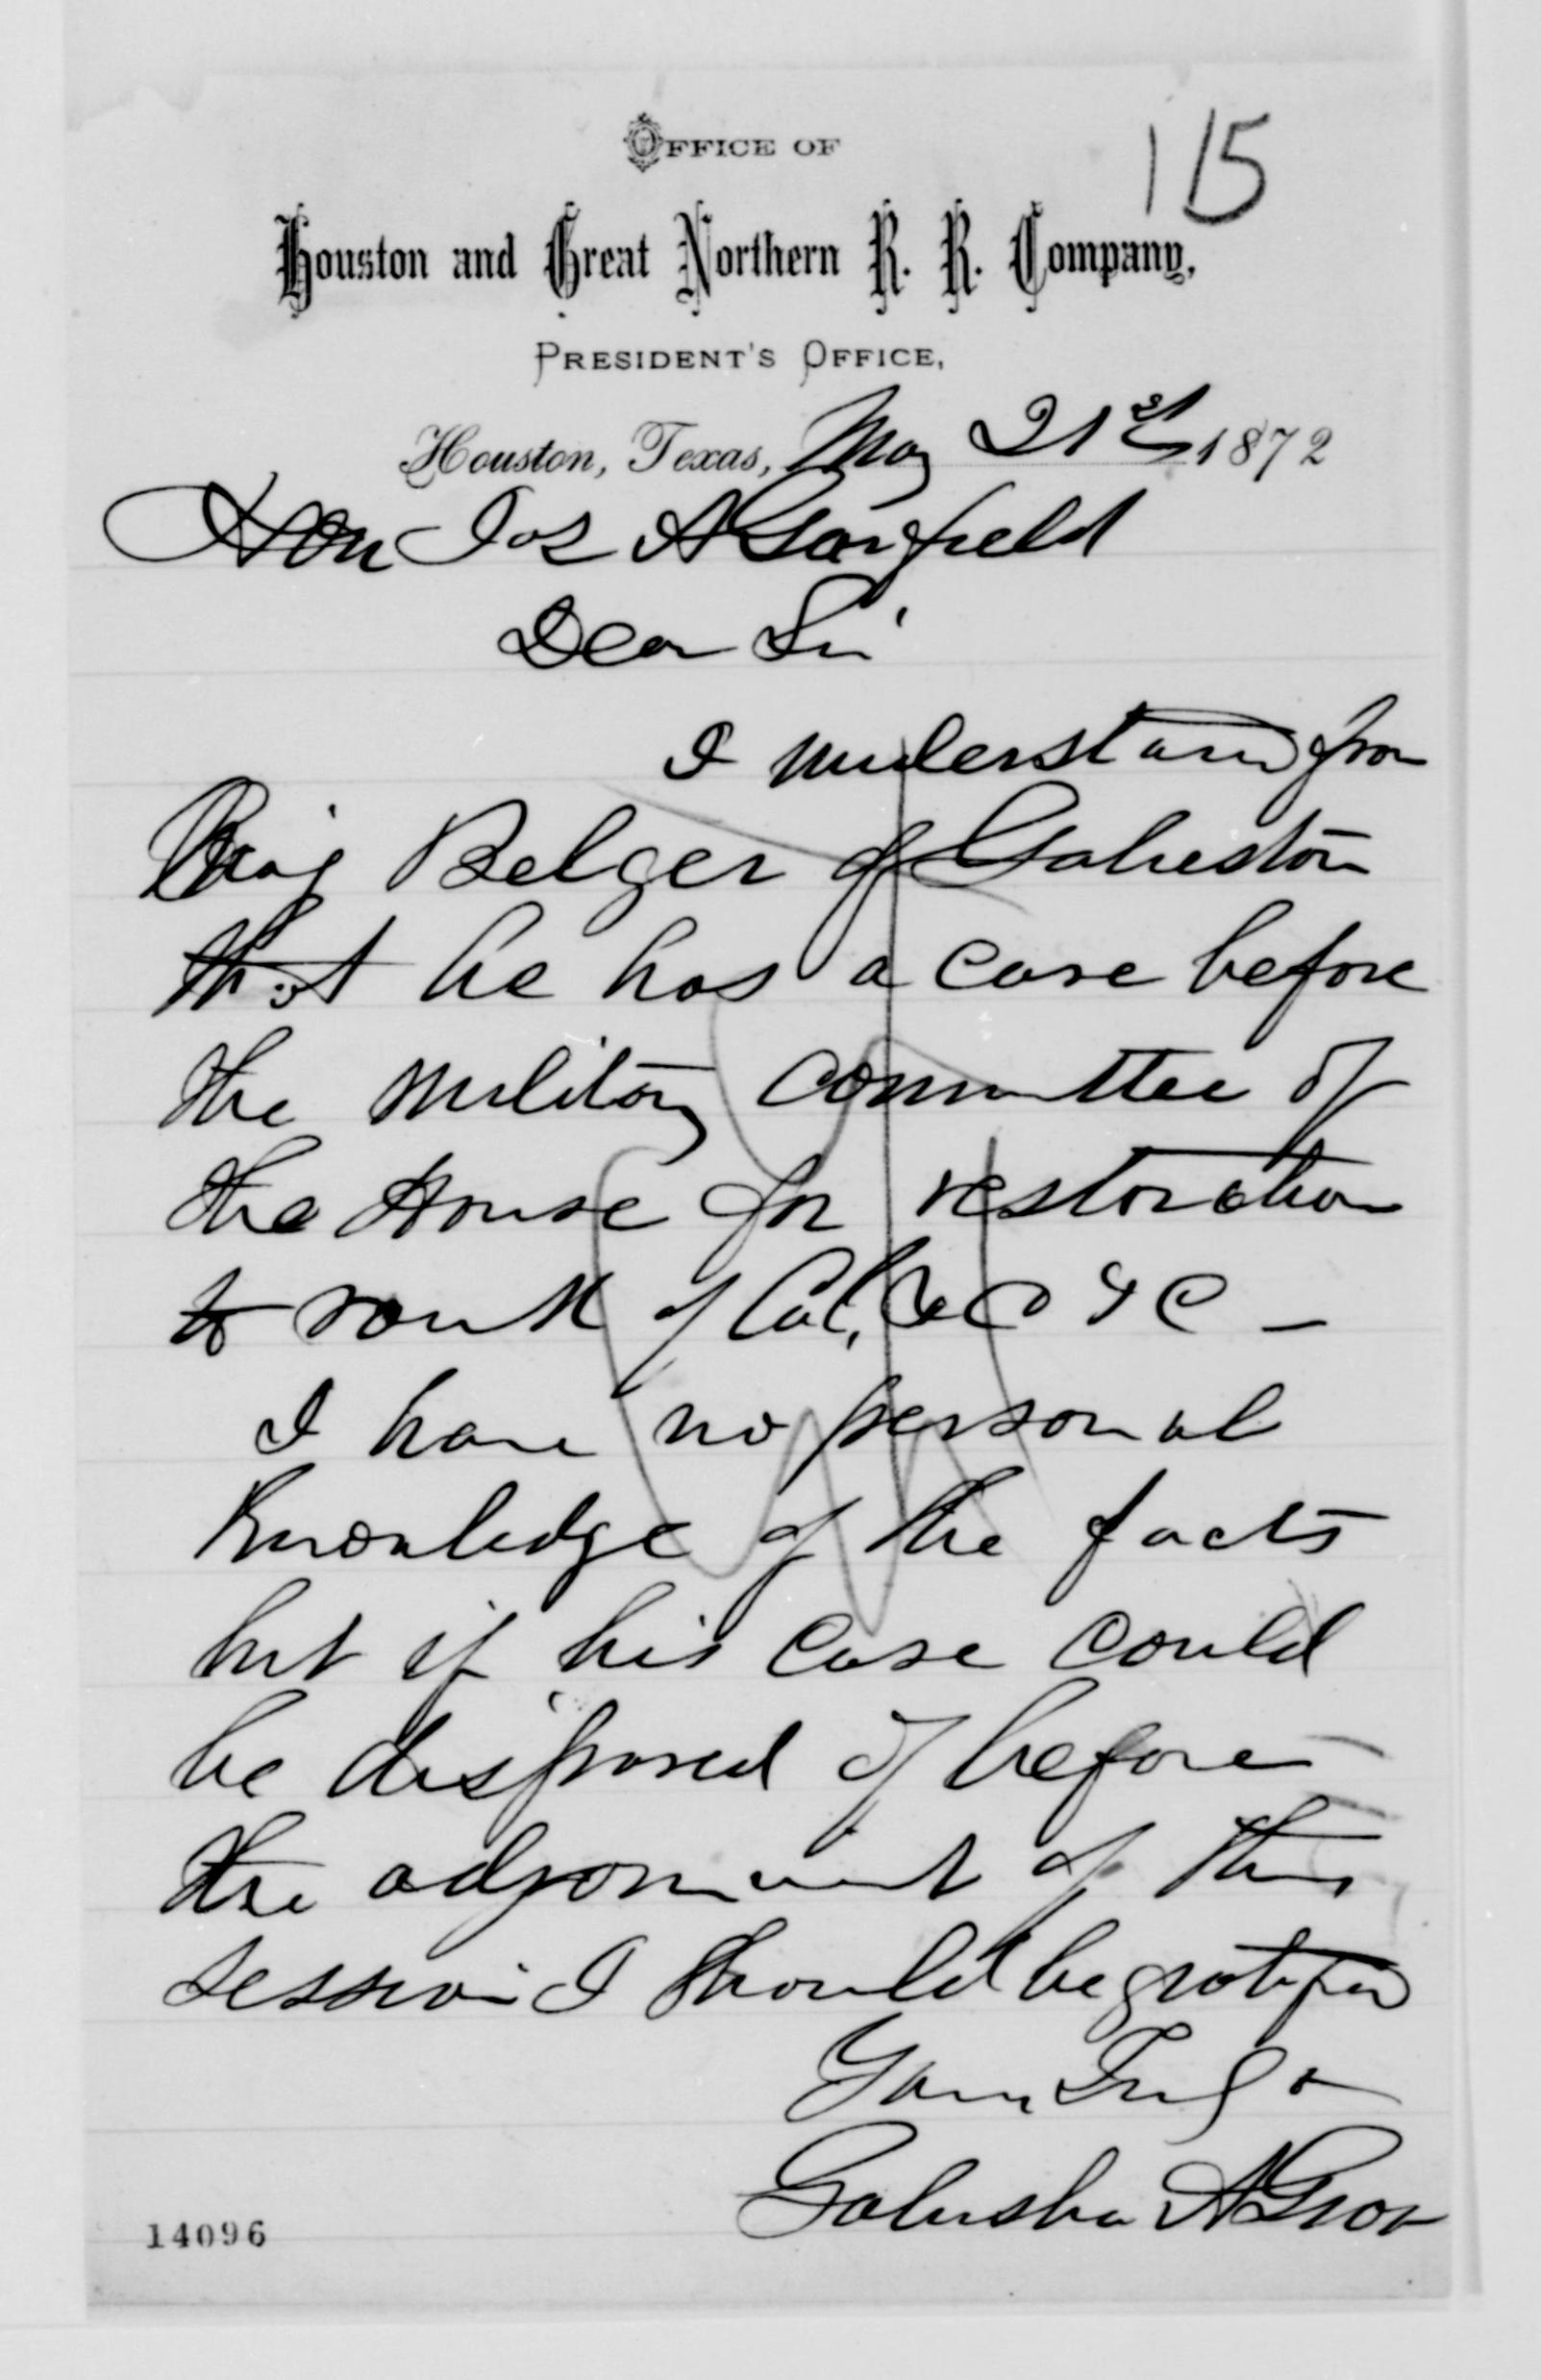 115
OFFICE OF
Houston and Great Northern R. R. Company,
PRESIDENT'S OFFICE,
Houston, Texas, May 21st 1872
Hon Jas A Garfield
Dear Sir
I understand from
Belger of Galveston
that he has a case before
the Military Committee of
the House for restoration
to rank of Col, &C —
I have no personal
knowledge of the facts
but if his case could
be disposed of before
the adjornment of this
session I should be gratified
Yours Truly
Galusha A Grow
14096